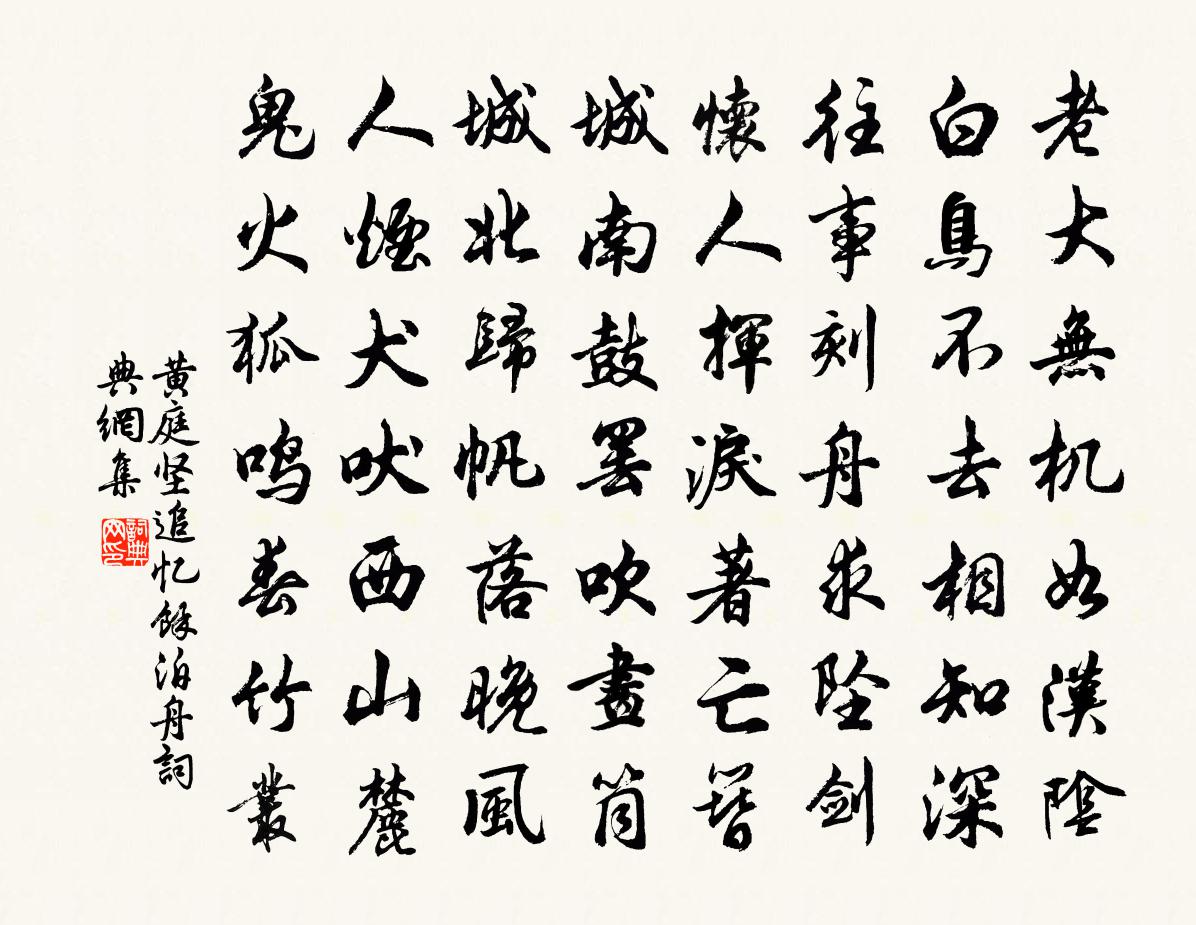 老大無机如漢陰
白鳥不去相知深
往事刻舟求坠剑
懷人揮淚著亡簪
城南鼓罢吹畫筒
城北歸帆落晚風
人煙犬吠西山麓
鬼火狐鸣春竹叢
黄庭坚追忆餘泊舟詞
典網集
詞典
网印